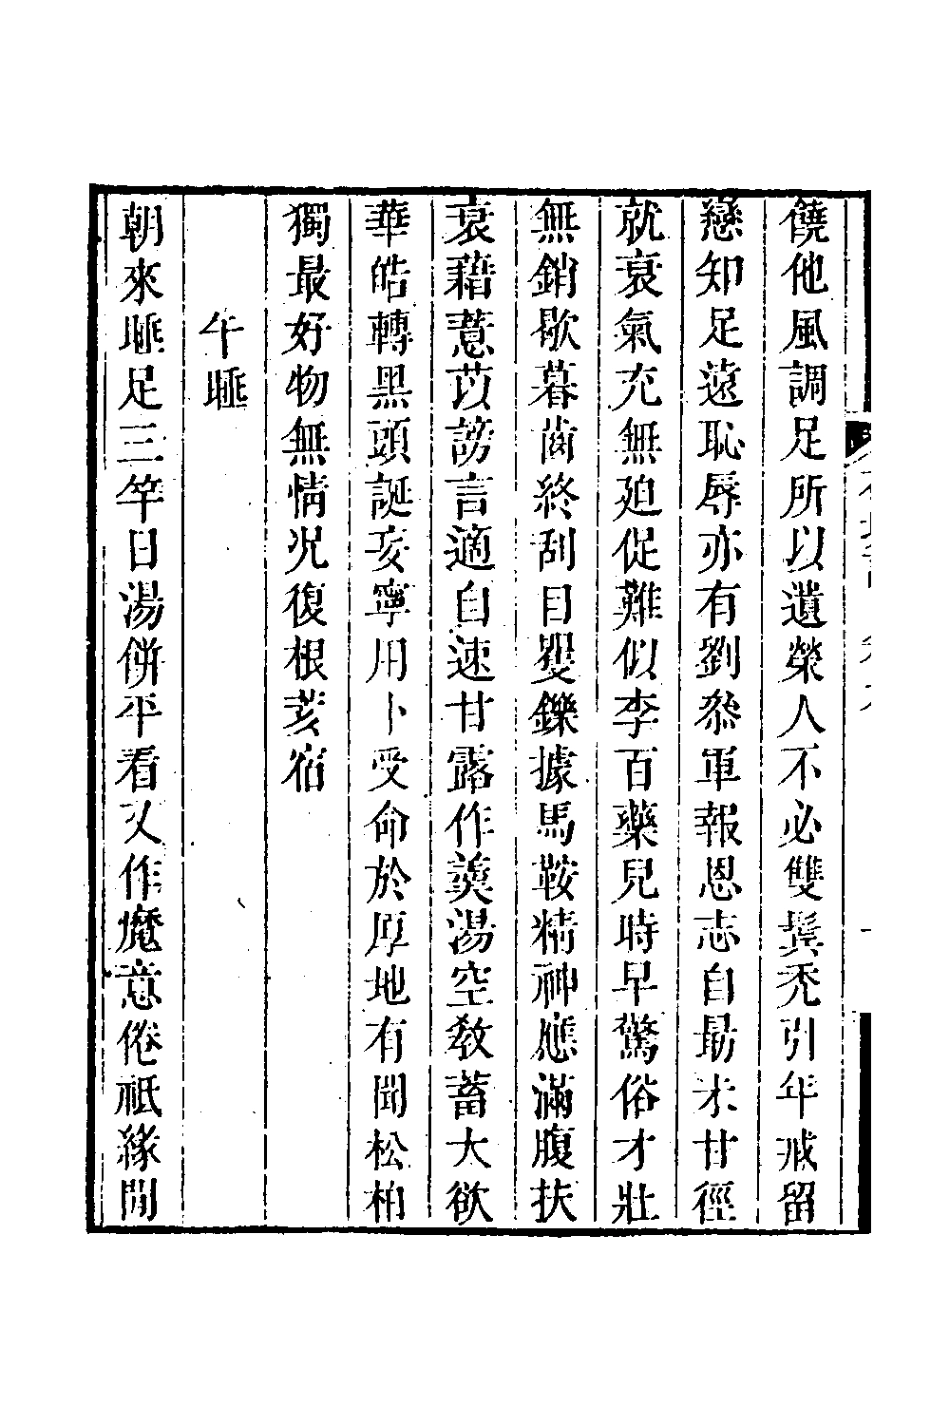 饒他風調足所以遺榮人不必雙鬓禿引年戒留
戀知足遠恥辱亦有劉叅軍報恩志自最未甘徑
就衰氣充無廹促難似李百藥兒時早驚俗才壯
無銷歇暮齒終刮目矍鑠據馬鞍精神應滿腹扶
衰藉薏苡謗言適自速甘露作羹湯空教蓄大欲
華皓轉黑頭誕妄寧用卜受命於厚地有聞松柏
獨最好物無情况復根荄宿
午睡
朝來睡足三竿日湯餅平看又作魔意倦祇緣閒